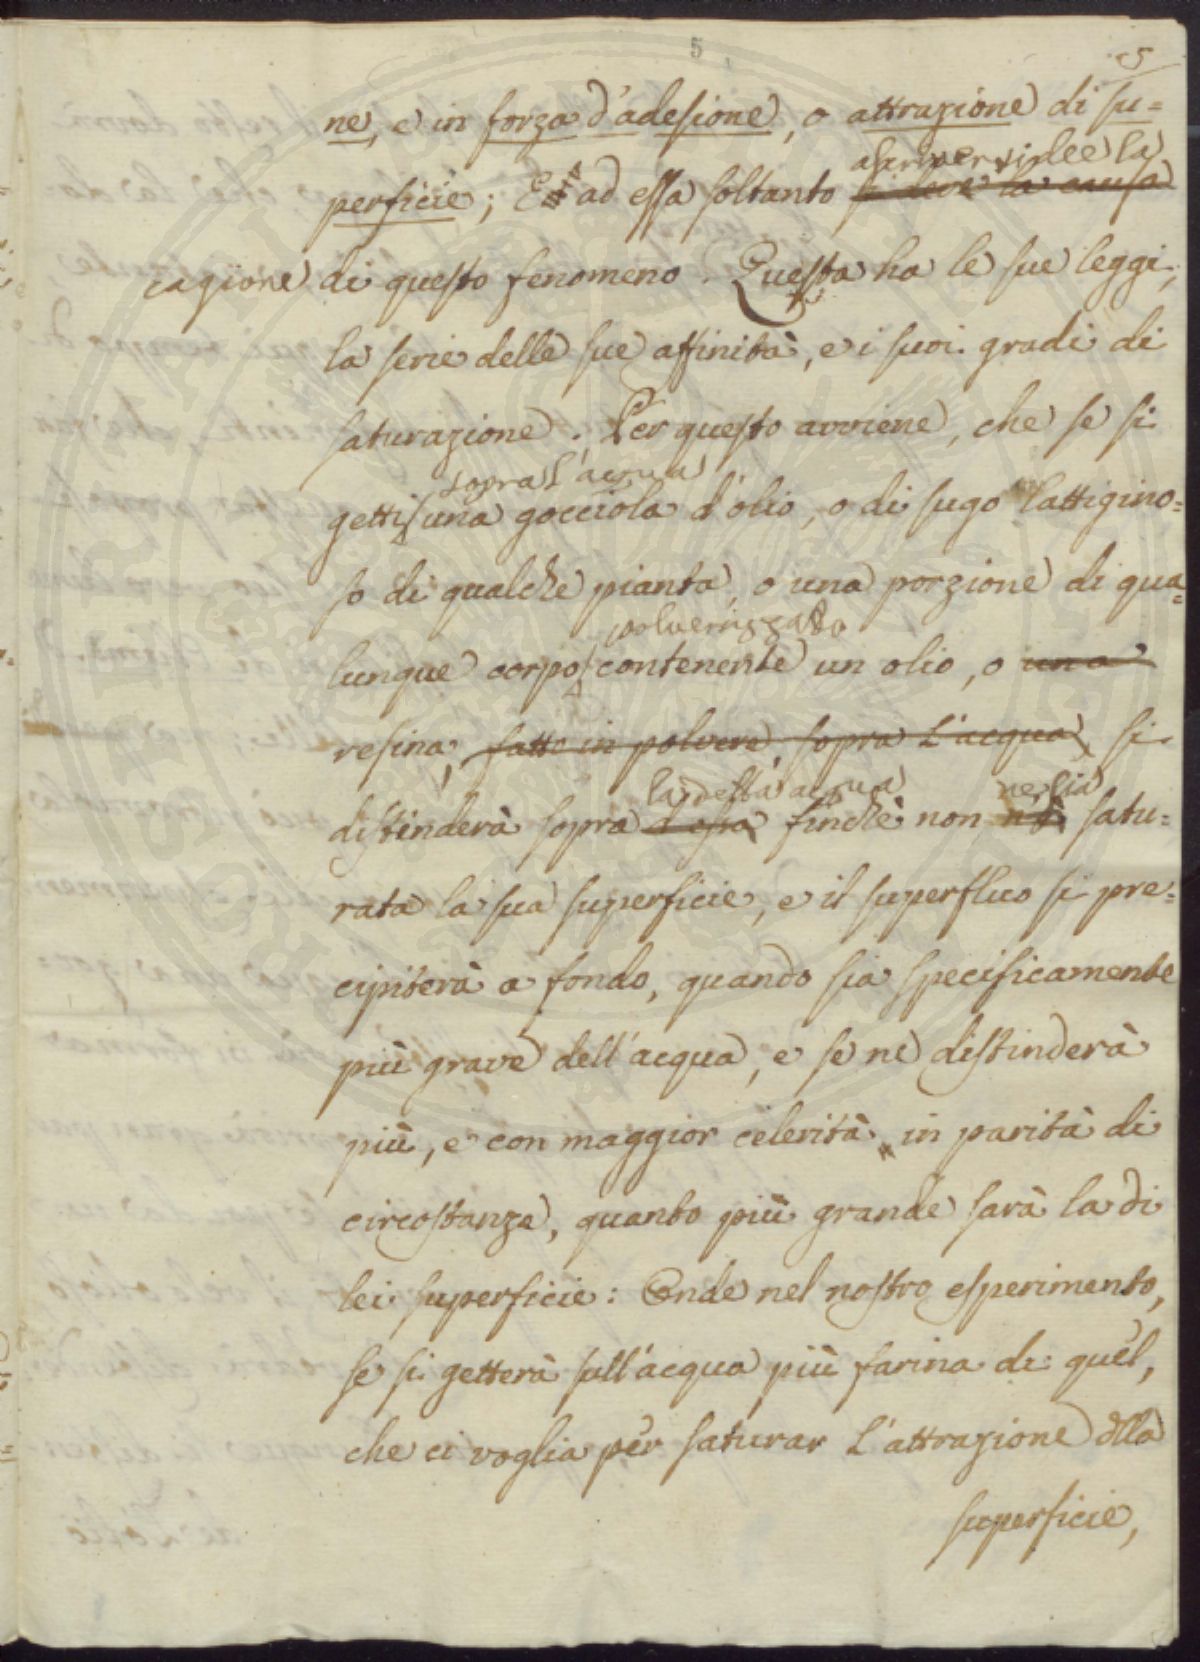 5
5
ne, e in forza d'adesione, o attrazione di su=
ascriversidee la
perficie; E ad essa soltanto si deve la causa
cagione di questo fenomeno. Questa ha le sue leggi,
la serie delle sue affinità, e i suoi gradi di
saturazione. Per questo avviene, che se si
sopra l'acqua
getti una gocciola d'olio, o di sugo lattigino=
so di qualche pianta, o una porzione di qua=
polverizzato
lunque corpo contenente un olio, o una
resina, fatto in polvere sopra l'acqua, si
la detta acqua ne sia
distinderà sopra d'essa finchè non satu=
rata la sua superficie, e il superfluo si pre=
cipiterà a fondo, quando sia specificamente
più grave dell'acqua, e se ne distinderà
più, e con maggior celerità, in parità di
circostanze, quanto più grande sarà la di
lei superficie: Onde nel nostro esperimento,
se si getterà sull'acqua più farina di quel,
che ci voglia per saturar l'attrazione dlla
superficie,